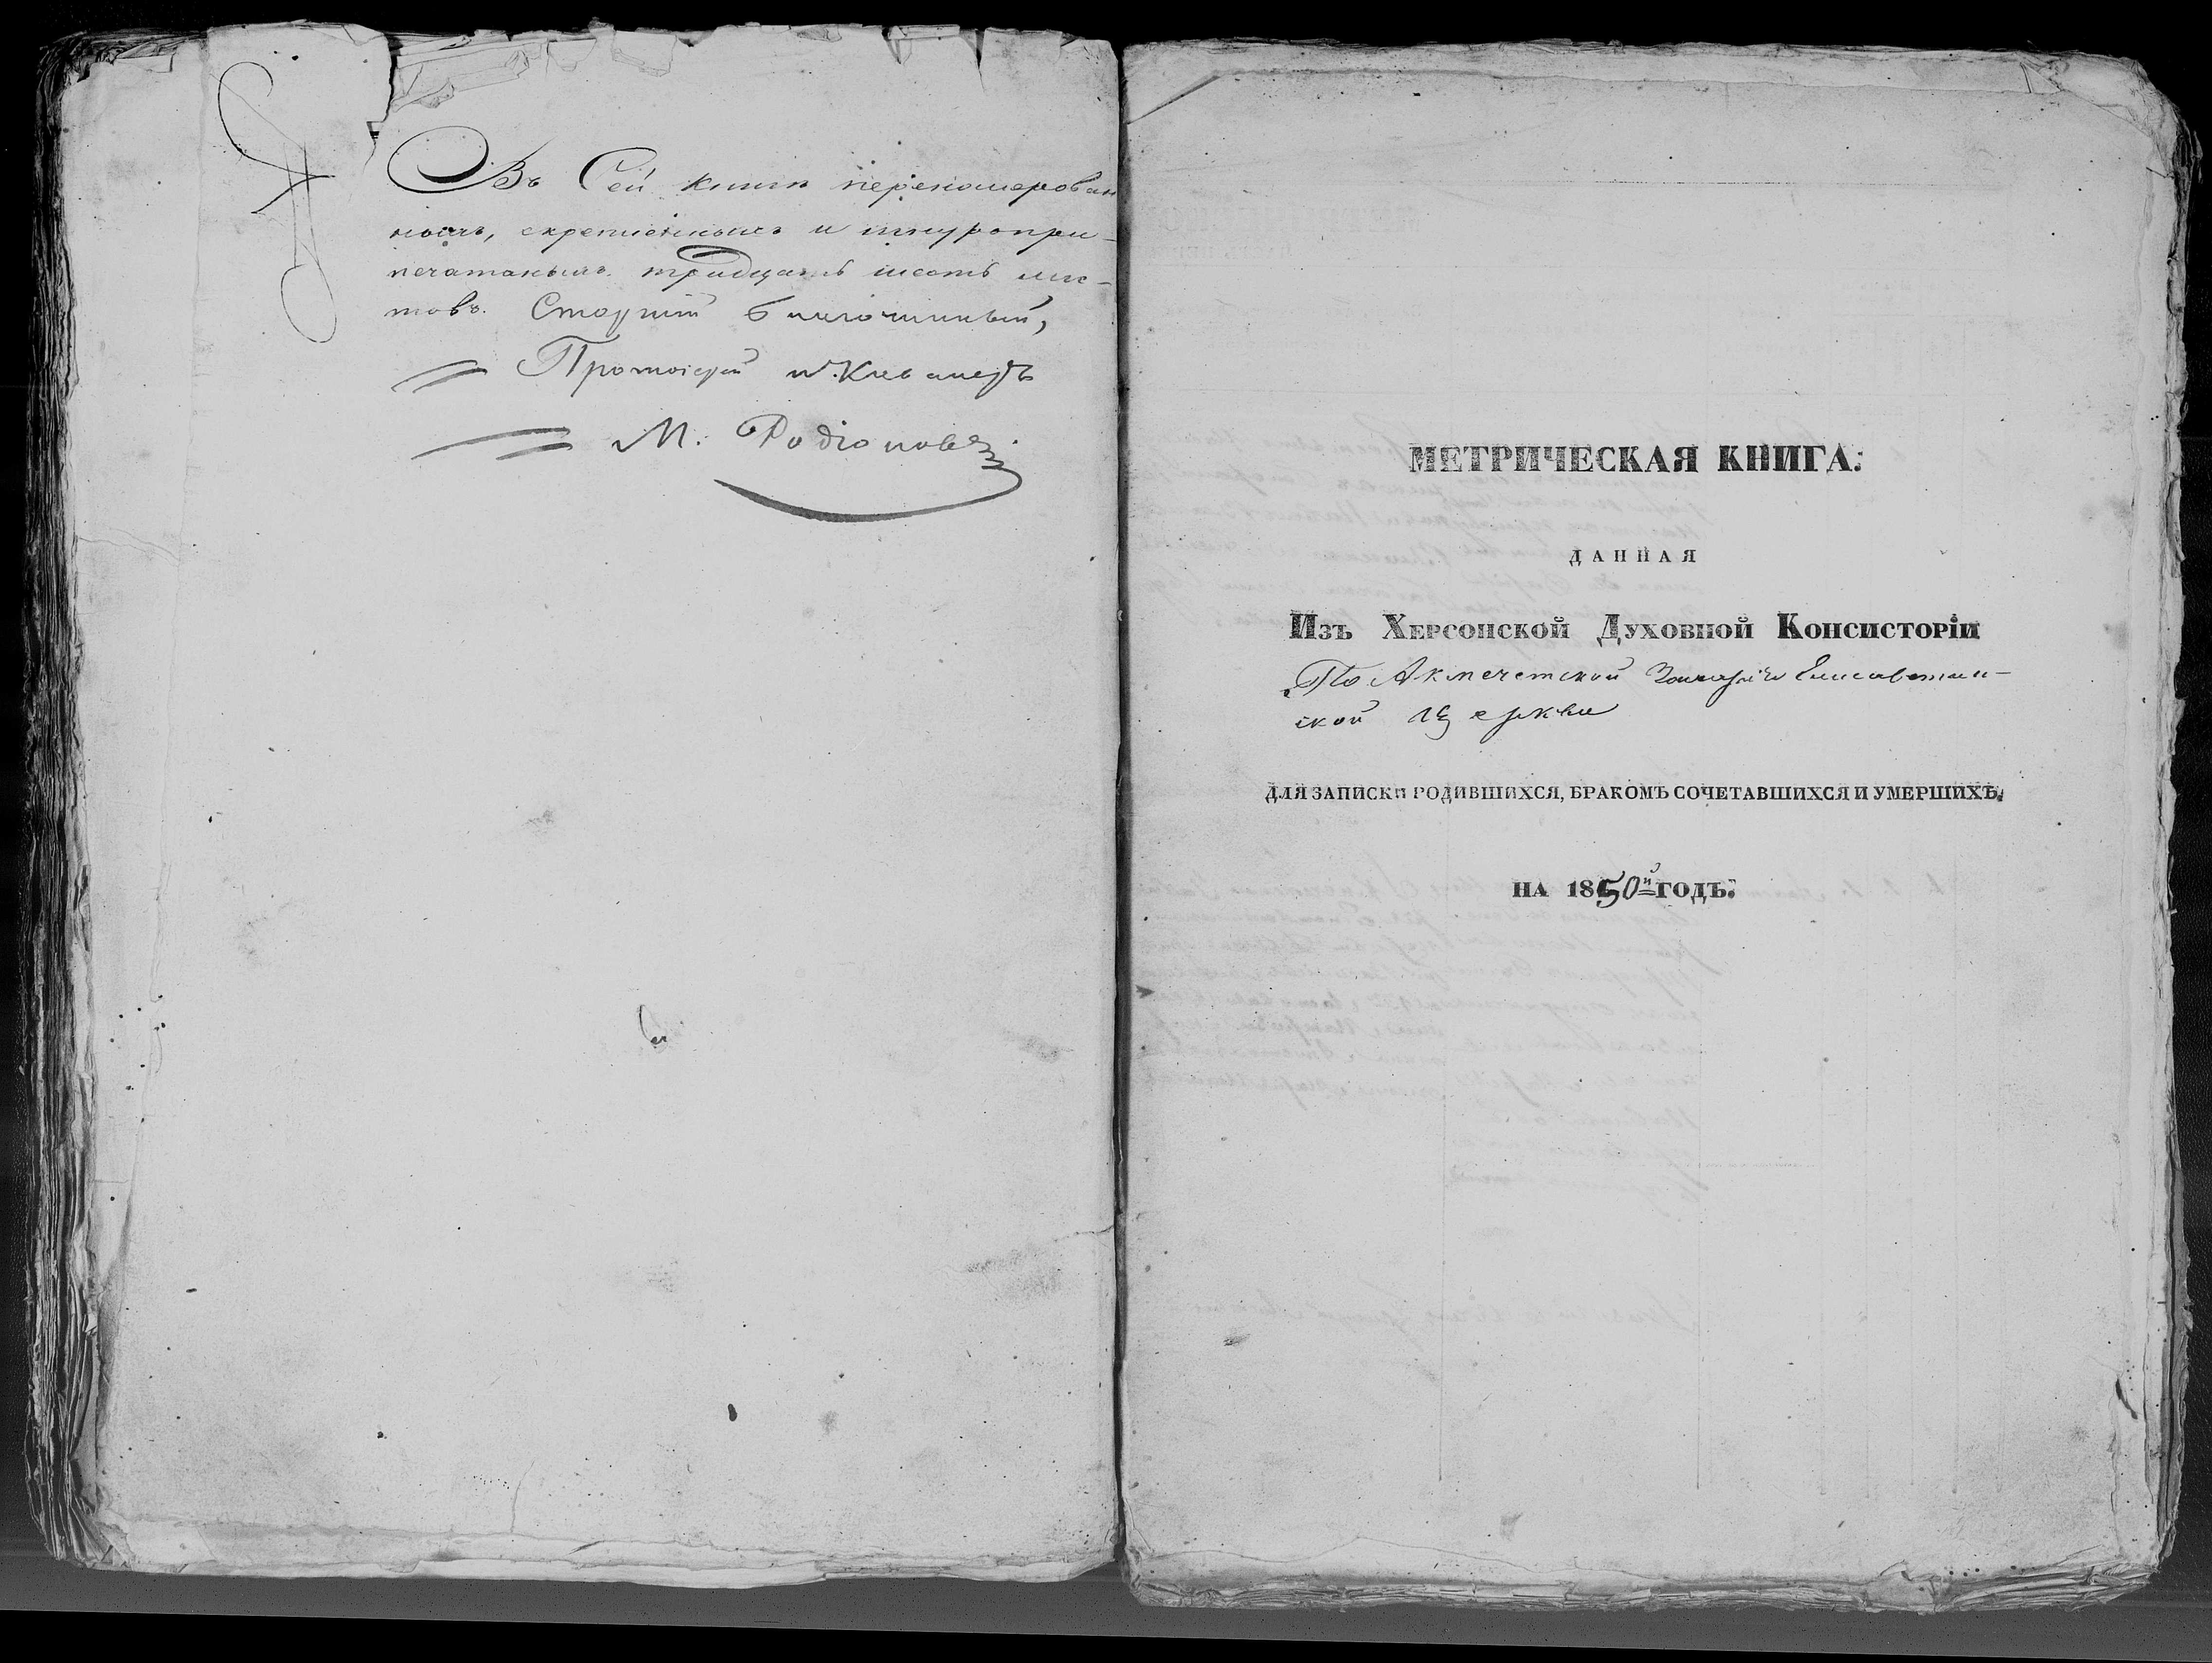 Въ Сей книги перекомерован
ныхъ, скрепленныхъ и шнуропри-
печатаныхъ тридцать шесть лис-
товъ. Старшій благочинный,
Протоіерей и Кавалеръ
М. Родіоновъ
МЕТРИЧЕСКАЯ КНИГА.
ДАННАЯ
Изъ Херсонской Духовной Консисторіи
По Акмечетской Захаріе Елисаветин-
ской Церкви
ДЛЯ ЗАПИСКИ РОДИВШИХСЯ, БРАКОМЪ СОЧЕТАВШИХСЯ И УМЕРШИХЪ,
НА 1850й ГОДЪ.